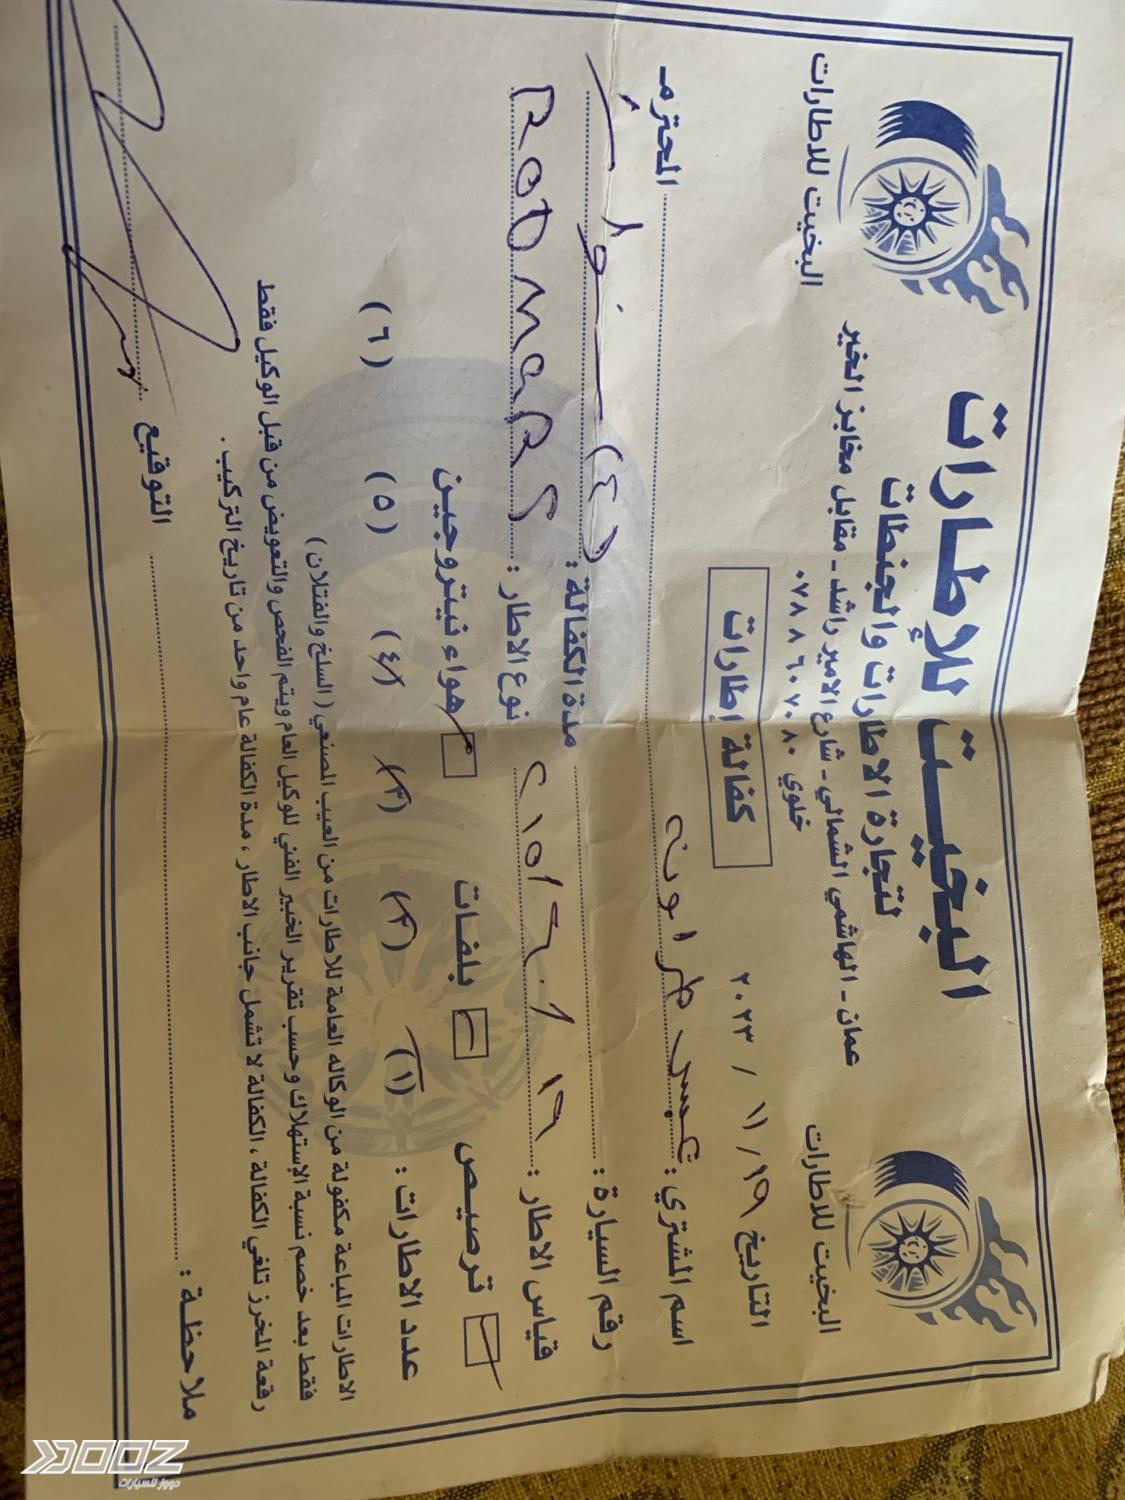 البخيت للإطارات
لتجارة الاطارات والجنطات
عمان - الهاشمي الشمالي - شارع الامير راشد - مقابل مخابز الخير
خلوي ٠٧٨٨٦٠٧٠٨٠
البخيت للاطارات
البخيت للاطارات
التاريخ ١٩ / ١١ / ٢٠٢٣
كفالة إطارات
اسم المشتري : عيسى طراونه المحترم
رقم السيارة : مدة الكفالة : (٤) سنوات
قياس الاطار : ١٦ / ٦٠ / ٢١٥ نوع الاطار : ROTMARS
ترصيص بلفات هواء نيتروجين
عدد الاطارات : (١) (٢) (٣) (٤) (٥) (٦)
الاطارات المباعة مكفولة من الوكاله العامة للاطارات من العيب المصنعي ( السلخ والفتلان )
فقط بعد خصم نسبة الإستهلاك وحسب تقرير الخبير الفني للوكيل العام ويتم الفحص والتعويض من قبل الوكيل فقط
رقعة المخرز تلغي الكفالة ، الكفالة لا تشمل جانب الاطار ، مدة الكفالة عام واحد من تاريخ التركيب .
ملاحظة : التوقيع
DOOZ
دووز للسيارات